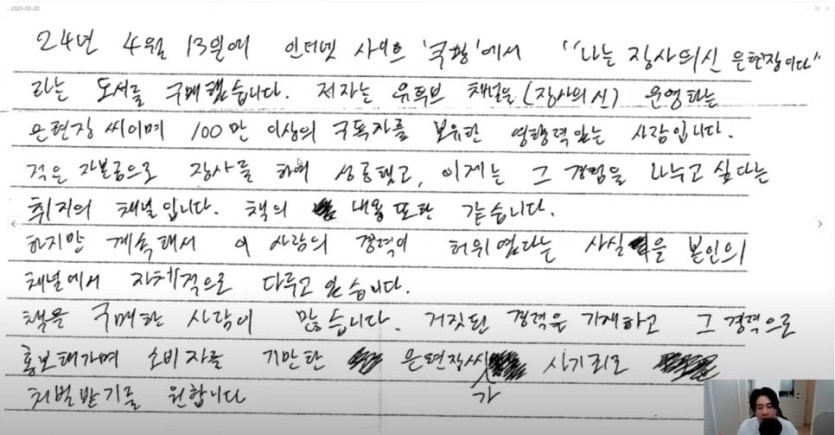 2025-02-20
24년 4월 13일에 인터넷 사이트 '쿠팡'에서 "나는 장사의신 은현장이다"
라는 도서를 구매했습니다. 저자는 유튜브 채널을 (장사의신) 운영하는
은현장 씨이며 100만 이상의 구독자를 보유한 영향력있는 사람입니다.
적은 자본금으로 장사를 하여 성공했고, 이제는 그 경험을 나누고 싶다는
취지의 채널입니다. 책의 내용 또한 같습니다.
하지만 계속해서 이 사람의 경력이 허위였다는 사실을 본인의
채널에서 자체적으로 다루고 있습니다.
책을 구매한 사람이 많습니다. 거짓된 경력을 기재하고 그 경력으로
홍보해가며 소비자를 기만한 은현장씨가 사기죄로
처벌받기를 원합니다